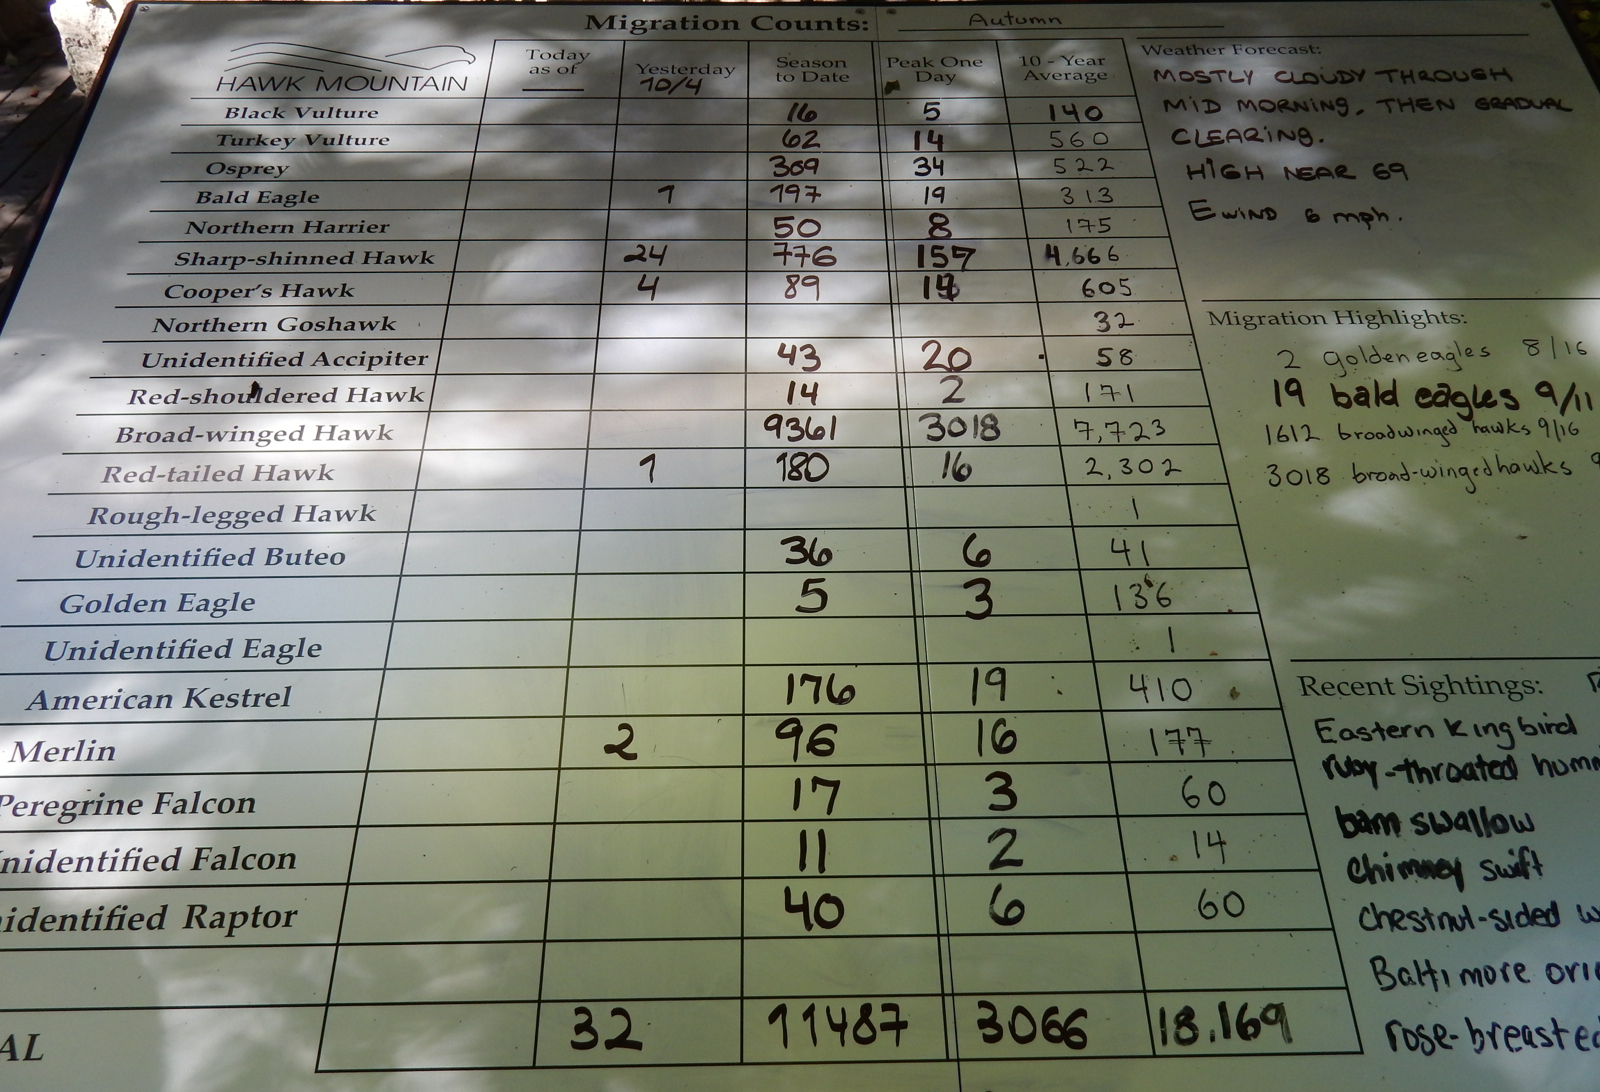 Migration Counts: Autumn
HAWK MOUNTAIN
Today as of
Yesterday 10/4
Season to Date
Peak One Day
10 - Year Average
Black Vulture 16 5 140
Turkey Vulture 62 14 560
Osprey 309 34 522
Bald Eagle 1 197 19 313
Northern Harrier 50 8 175
Sharp-shinned Hawk 24 776 157 4,666
Cooper's Hawk 4 89 605
Northern Goshawk 32
Unidentified Accipiter 43 20 58
Red-shouldered Hawk 14 2 171
Broad-winged Hawk 9361 3018 7,723
Red-tailed Hawk 1 180 16 2,302
Rough-legged Hawk 1
Unidentified Buteo 36 6 41
Golden Eagle 5 3 136
Unidentified Eagle 1
American Kestrel 176 19 410
Merlin 2 96 16 177
Peregrine Falcon 17 3 60
nidentified Falcon 11 2 14
identified Raptor 40 6 60
AL 32 11487 3066 18.169
Weather Forecast:
MOSTLY CLOUDY THROUGH
MID MORNING, THEN GRADUAL
CLEARING.
HIGH NEAR 69
E WIND 6 mph.
Migration Highlights:
2 golden eagles 8/16
19 bald eagles 9/11
1612 broadwinged hawks 9/16
3018 broad-winged hawks 9
Recent Sightings:
Eastern Kingbird
ruby-throated humm
barn swallow
chimney swift
chestnut-sided w
Baltimore orio
rose-breasted